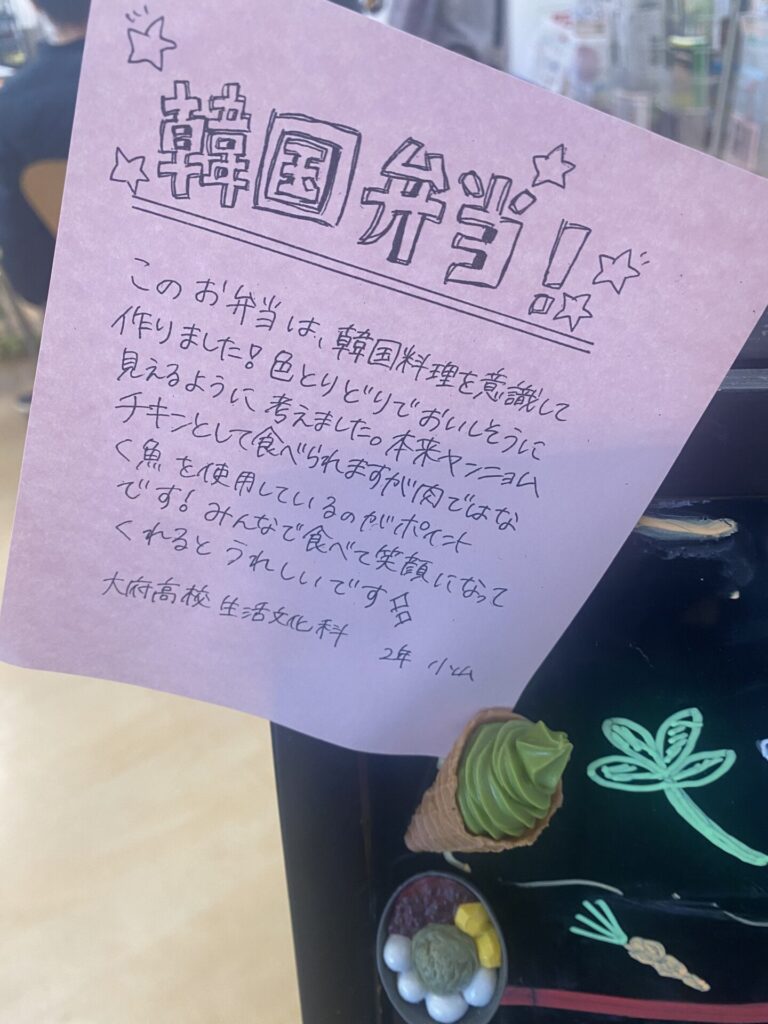 韓国弁当!
このお弁当は、韓国料理を意識して
作りました!色とりどりでおいしそうに
見えるように考えました。本来ヤンニョム
チキンとして食べられますが肉ではな
く魚を使用しているのがポイント
です!みんなで食べて笑顔になって
くれるとうれしいです
大府高校 生活文化科 2年